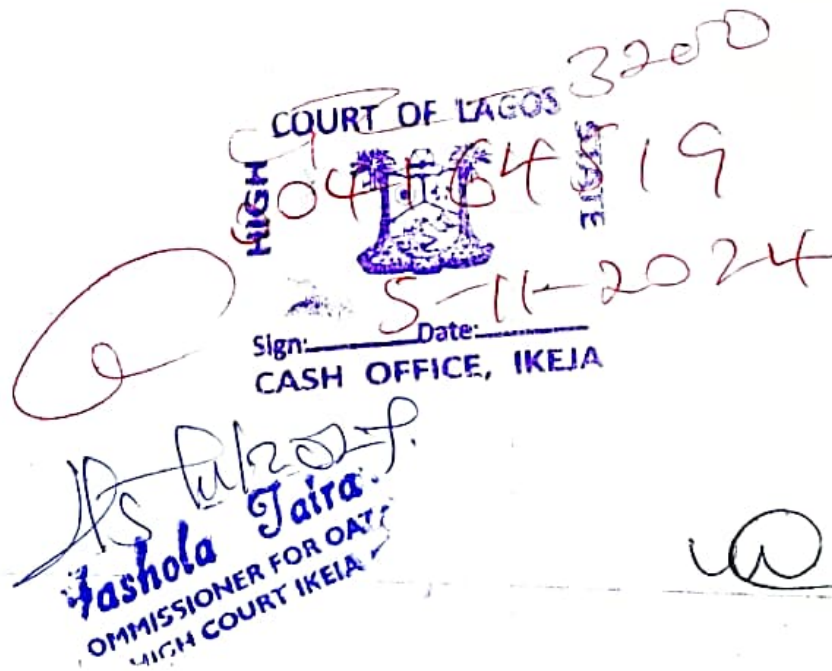 3200
COURT OF LAGOS
HIGH
STATE
5-11-2024
Sign: Date:
CASH OFFICE, IKEJA
Fashola Taira
OMMISSIONER FOR OAT
HIGH COURT IKEJA